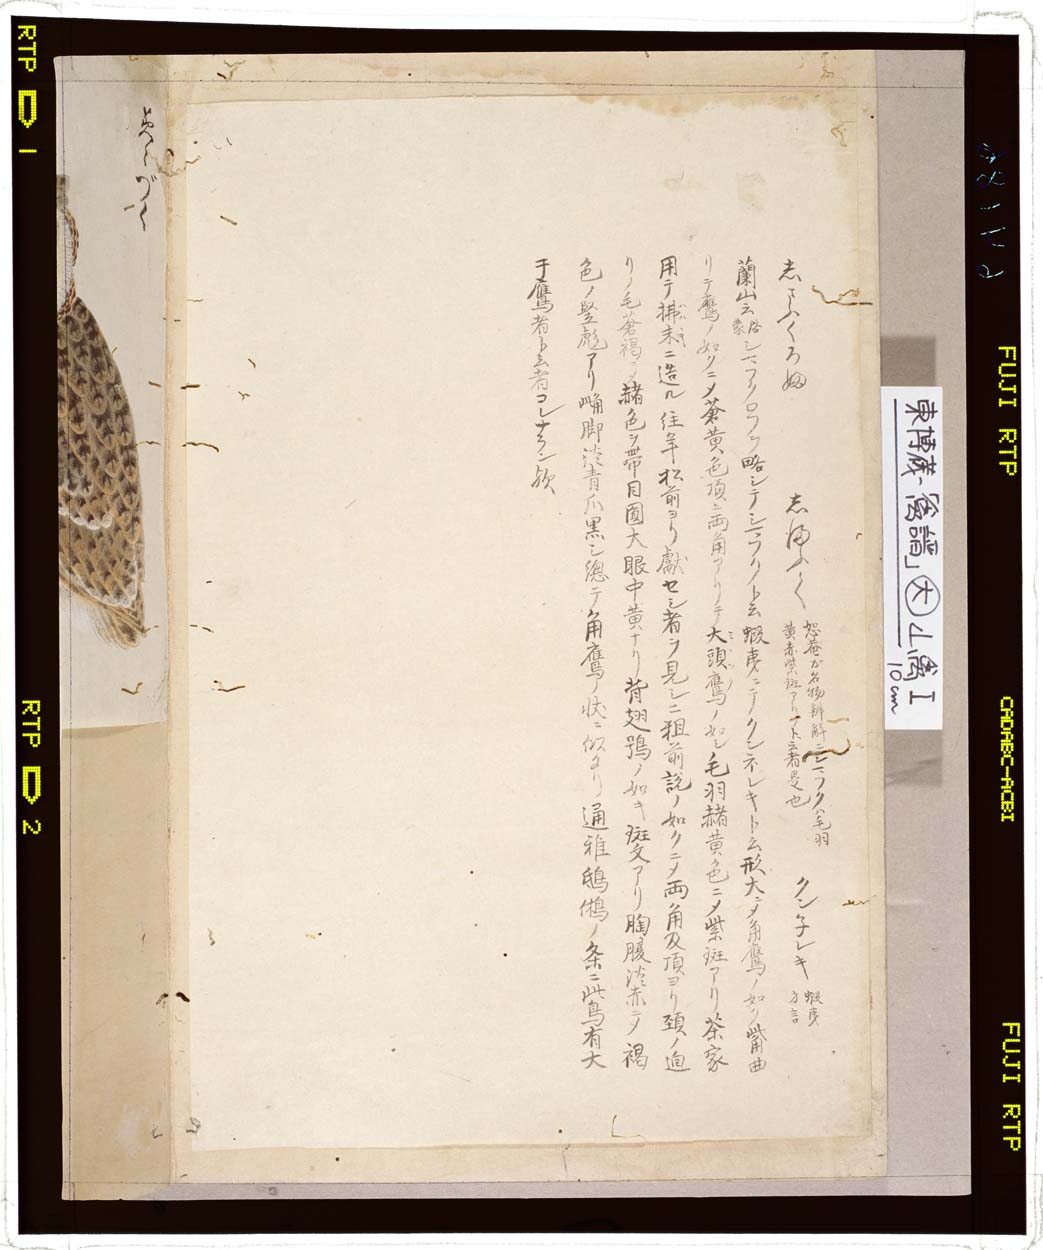 しまふくろふ しまふく 恕菴ガ名物辨解ニシマフクハ毛羽
黄赤紫斑アリト云者是也 クン子レキ 蝦夷
方言
蘭山云 啓蒙 シマフクロフヲ略シテシマフクト云 蝦夷ニテクンネレキト云 形大ニ〆角鷹ノ如ク觜曲
リテ鷹ノ如クニ〆蒼黄色頂ニ両角アリテ大頭鷹ノ如シ毛羽赭黄色ニ〆紫斑アリ茶家
用テ拂末ニ造ル 往年松前ヨリ獻セシ者ヲ見シニ粗前説ノ如クニ〆両角及頂ヨリ頚ノ廻
リノ毛蒼褐ニ〆赭色ヲ帯目圓大眼中黄ナリ背翅鴞ノ如キ斑文アリ胸腹淡赤ニ〆褐
色ノ竪彪アリ觜脚淡青爪黒シ總テ角鷹ノ状ニ似タリ 通雅鴟鵂ノ条ニ此鳥有大
于鷹者ト云者コレナラン歟
東博蔵「禽譜」大 山禽I
10cm
RTP 1
RTP 2
FUJI RTP
FUJI RTP